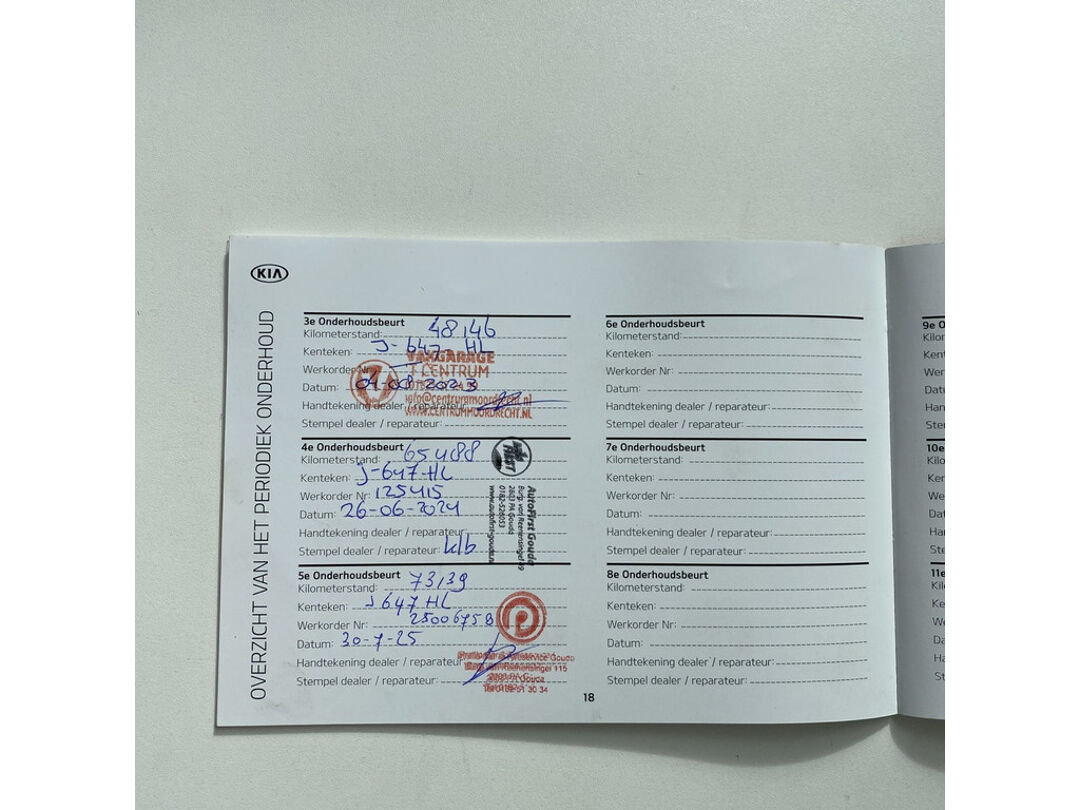 KIA
OVERZICHT VAN HET PERIODIEK ONDERHOUD
3e Onderhoudsbeurt
Kilometerstand: 48146
Kenteken: J-647-HL
Werkorder Nr:
Datum: 04-08-2023
Handtekening dealer / reparateur:
Stempel dealer / reparateur:
VAKGARAGE
'T CENTRUM
info@centrummoordrecht.nl
WWW.CENTRUMMOORDRECHT.NL
4e Onderhoudsbeurt
Kilometerstand: 65488
Kenteken: J-647-HL
Werkorder Nr: 125415
Datum: 26-06-2024
Handtekening dealer / reparateur:
Stempel dealer / reparateur: k/b
AutoFirst Gouda
Burg. van Reenensingel 69
2803 PA Gouda
0182-526053
www.autofirstgouda.nl
5e Onderhoudsbeurt
Kilometerstand: 73139
Kenteken: J647HL
Werkorder Nr: 25006758
Datum: 30-7-25
Handtekening dealer / reparateur:
Stempel dealer / reparateur:
Gouda
Reenensingel 115
Gouda
51 30 34
6e Onderhoudsbeurt
Kilometerstand:
Kenteken:
Werkorder Nr:
Datum:
Handtekening dealer / reparateur:
Stempel dealer / reparateur:
7e Onderhoudsbeurt
Kilometerstand:
Kenteken:
Werkorder Nr:
Datum:
Handtekening dealer / reparateur:
Stempel dealer / reparateur:
8e Onderhoudsbeurt
Kilometerstand:
Kenteken:
Werkorder Nr:
Datum:
Handtekening dealer / reparateur:
Stempel dealer / reparateur:
18
9e O
Kilo
Kent
Wer
Dat
Han
Ste
10e
Kilo
Ken
We
Dat
Ha
Ste
11e
Kil
Ke
W
Da
Ha
St